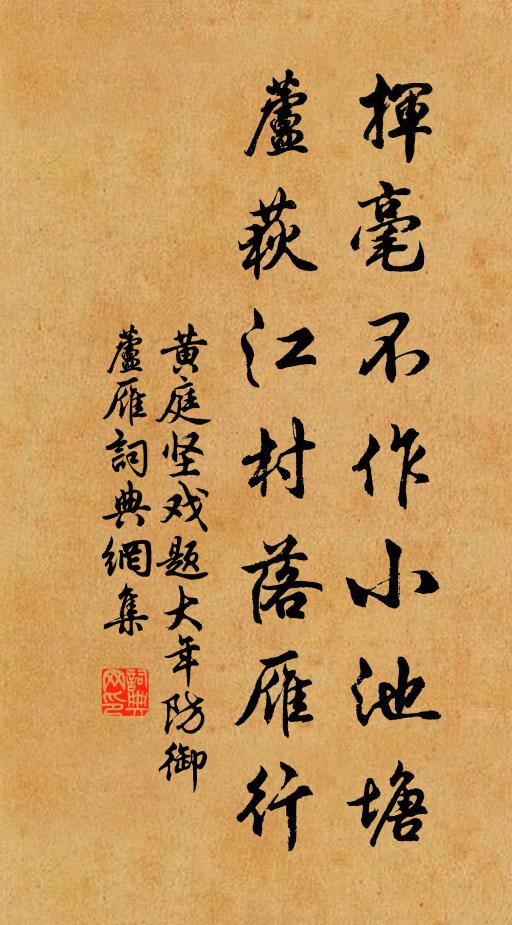 揮毫不作小池塘
蘆荻江村落雁行
黄庭坚戏题大年防御
蘆雁詞典網集
詞典網印